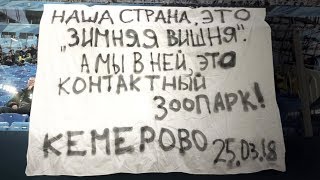 НАША СТРАНА, ЭТО
"ЗИМНЯЯ ВИШНЯ".
А МЫ В НЕЙ, ЭТО
КОНТАКТНЫЙ
ЗООПАРК!
КЕМЕРОВО 25.03.18